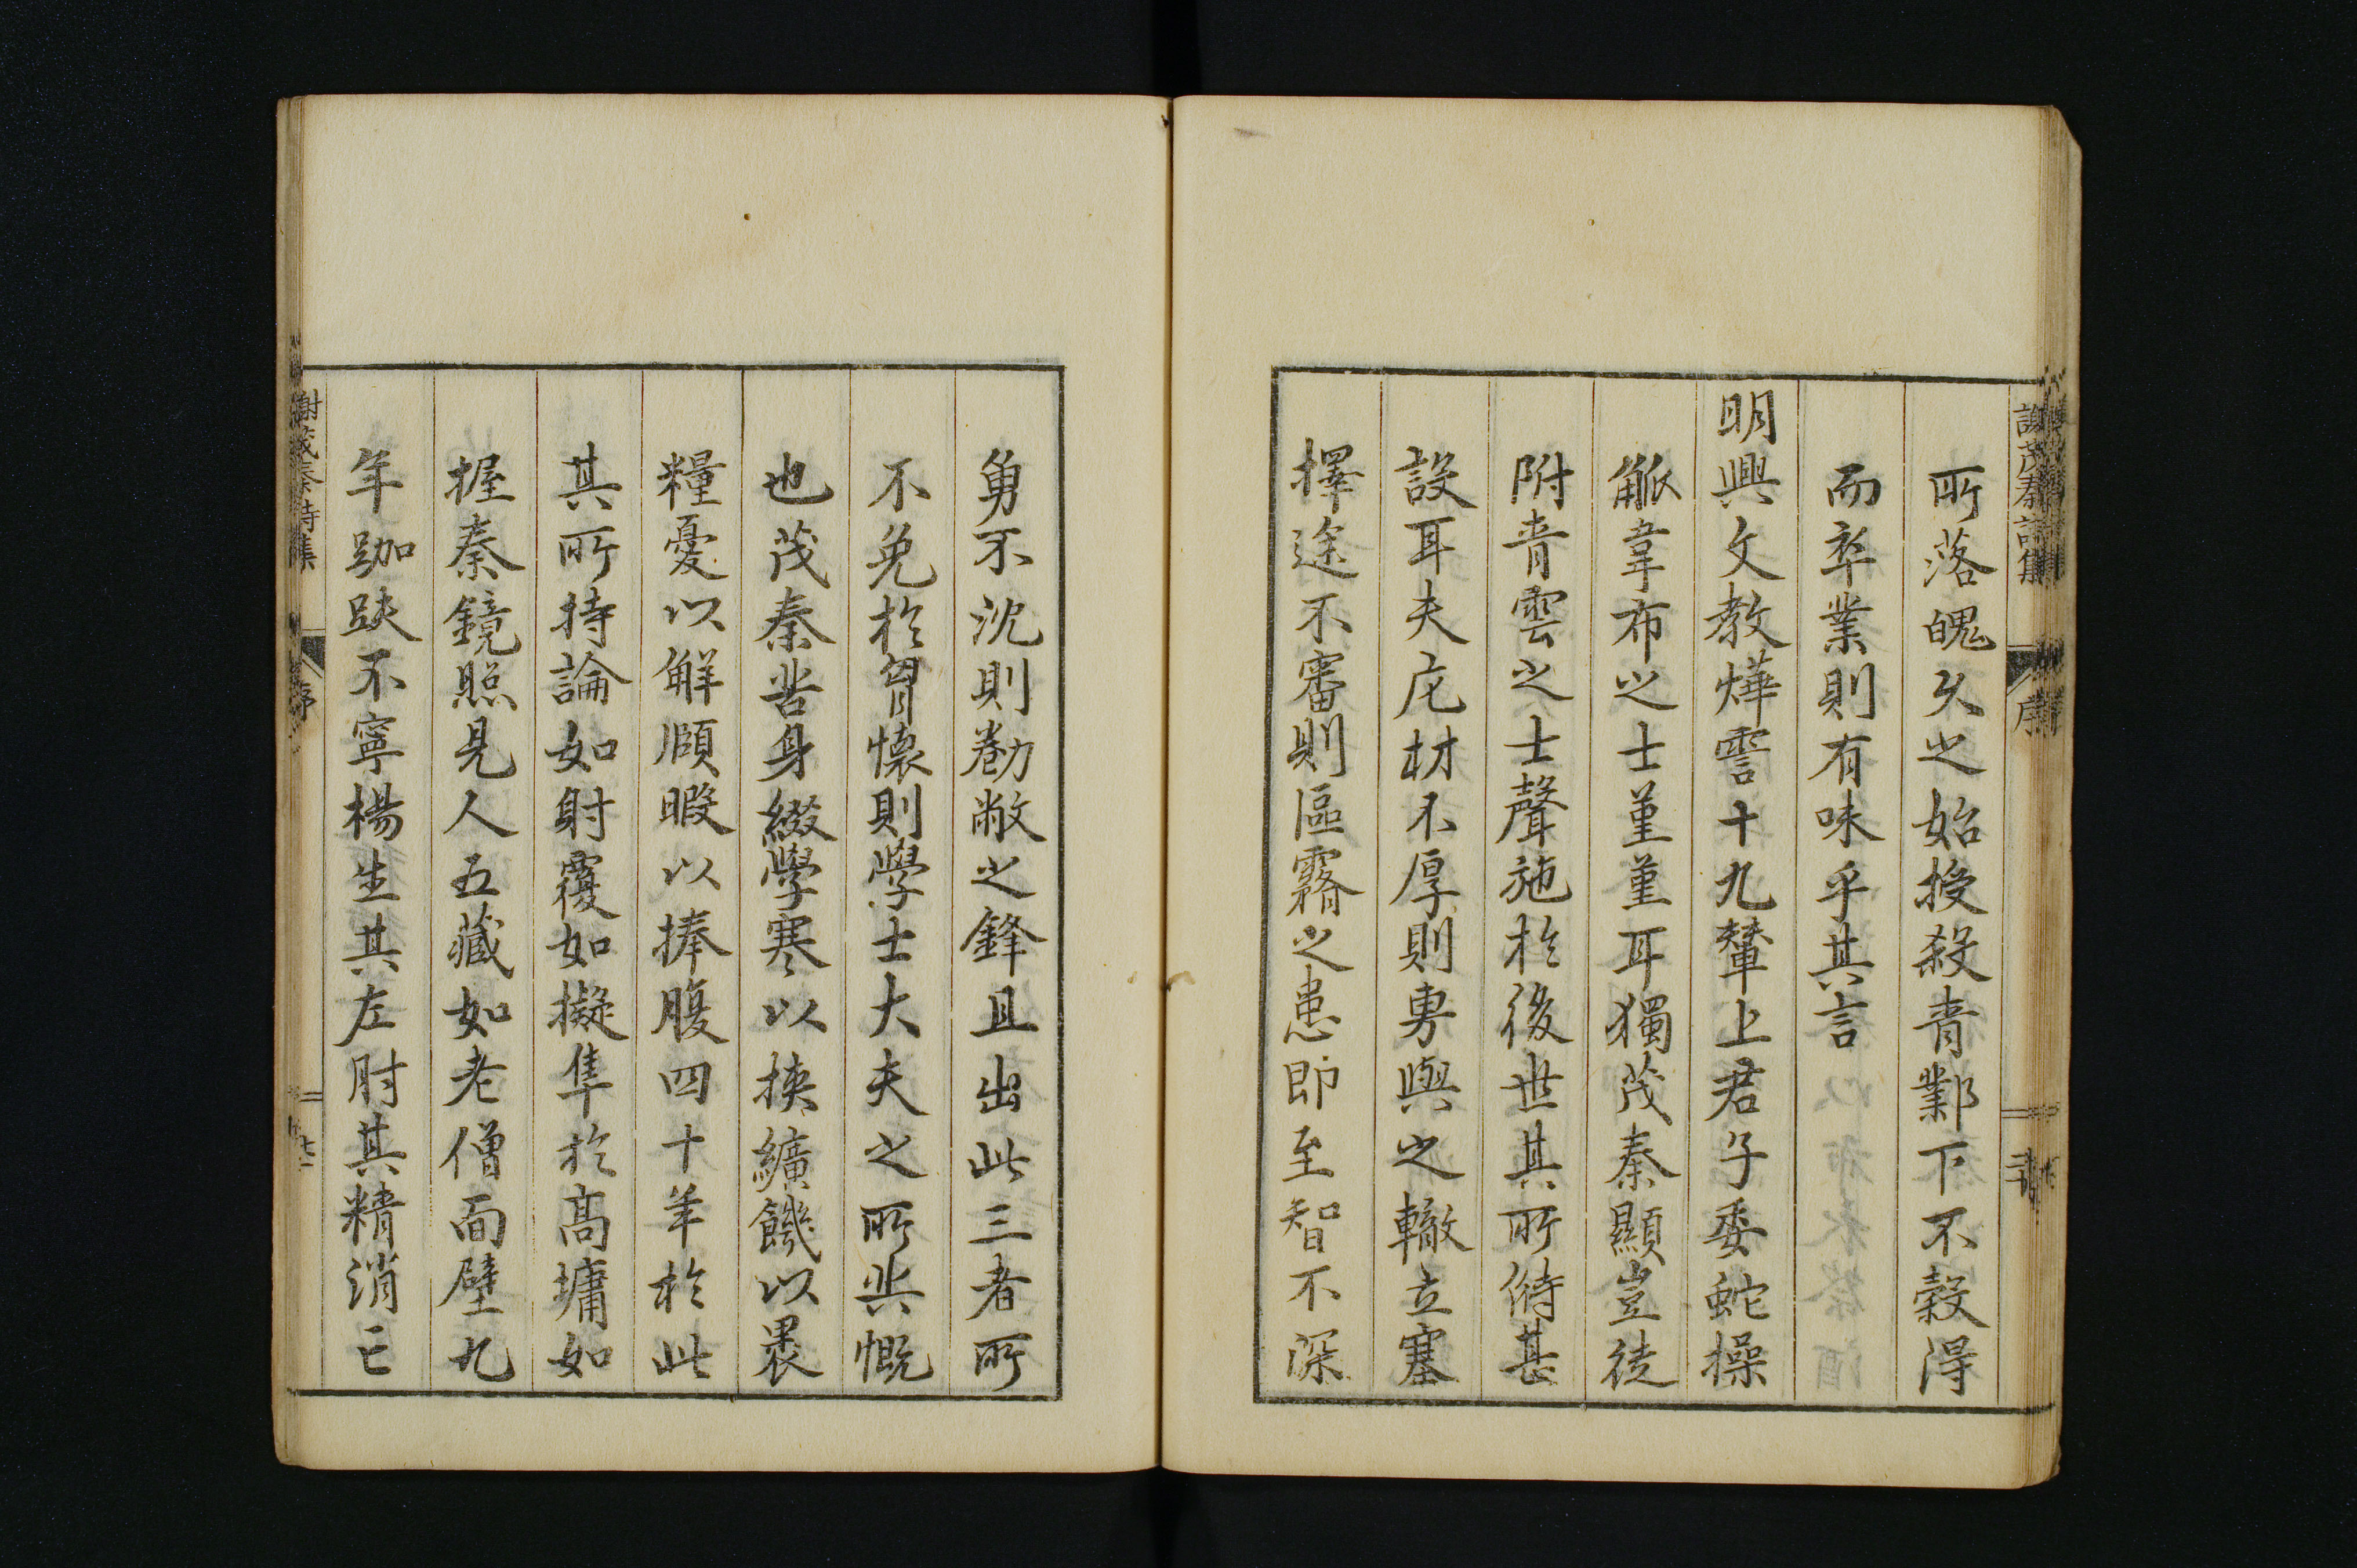 謝茂秦詩集 序
所落魄久之始授殺青鄴下不穀得
而卒業則有味乎其言
明興文教燁霅十九輦上君子委蛇操
觚韋布之士堇堇耳獨茂秦顯豈徒
附青雲之士聲施於後世其所偫甚
設耳夫庀材不厚則勇與之轍立蹇
擇途不審則區霧之患即至智不深
勇不沈則勌敝之鋒且出此三者所
不免於胷懷則學士大夫之所共慨
也茂秦苦身綴學寒以挾纊饑以褁
糧憂以解頤暇以捧腹四十年於此
其所持論如射覆如擬隼於高墉如
握秦鏡照見人五藏如老僧面壁九
年跏趺不寧楊生其左肘其精消亡
謝茂秦詩集 序